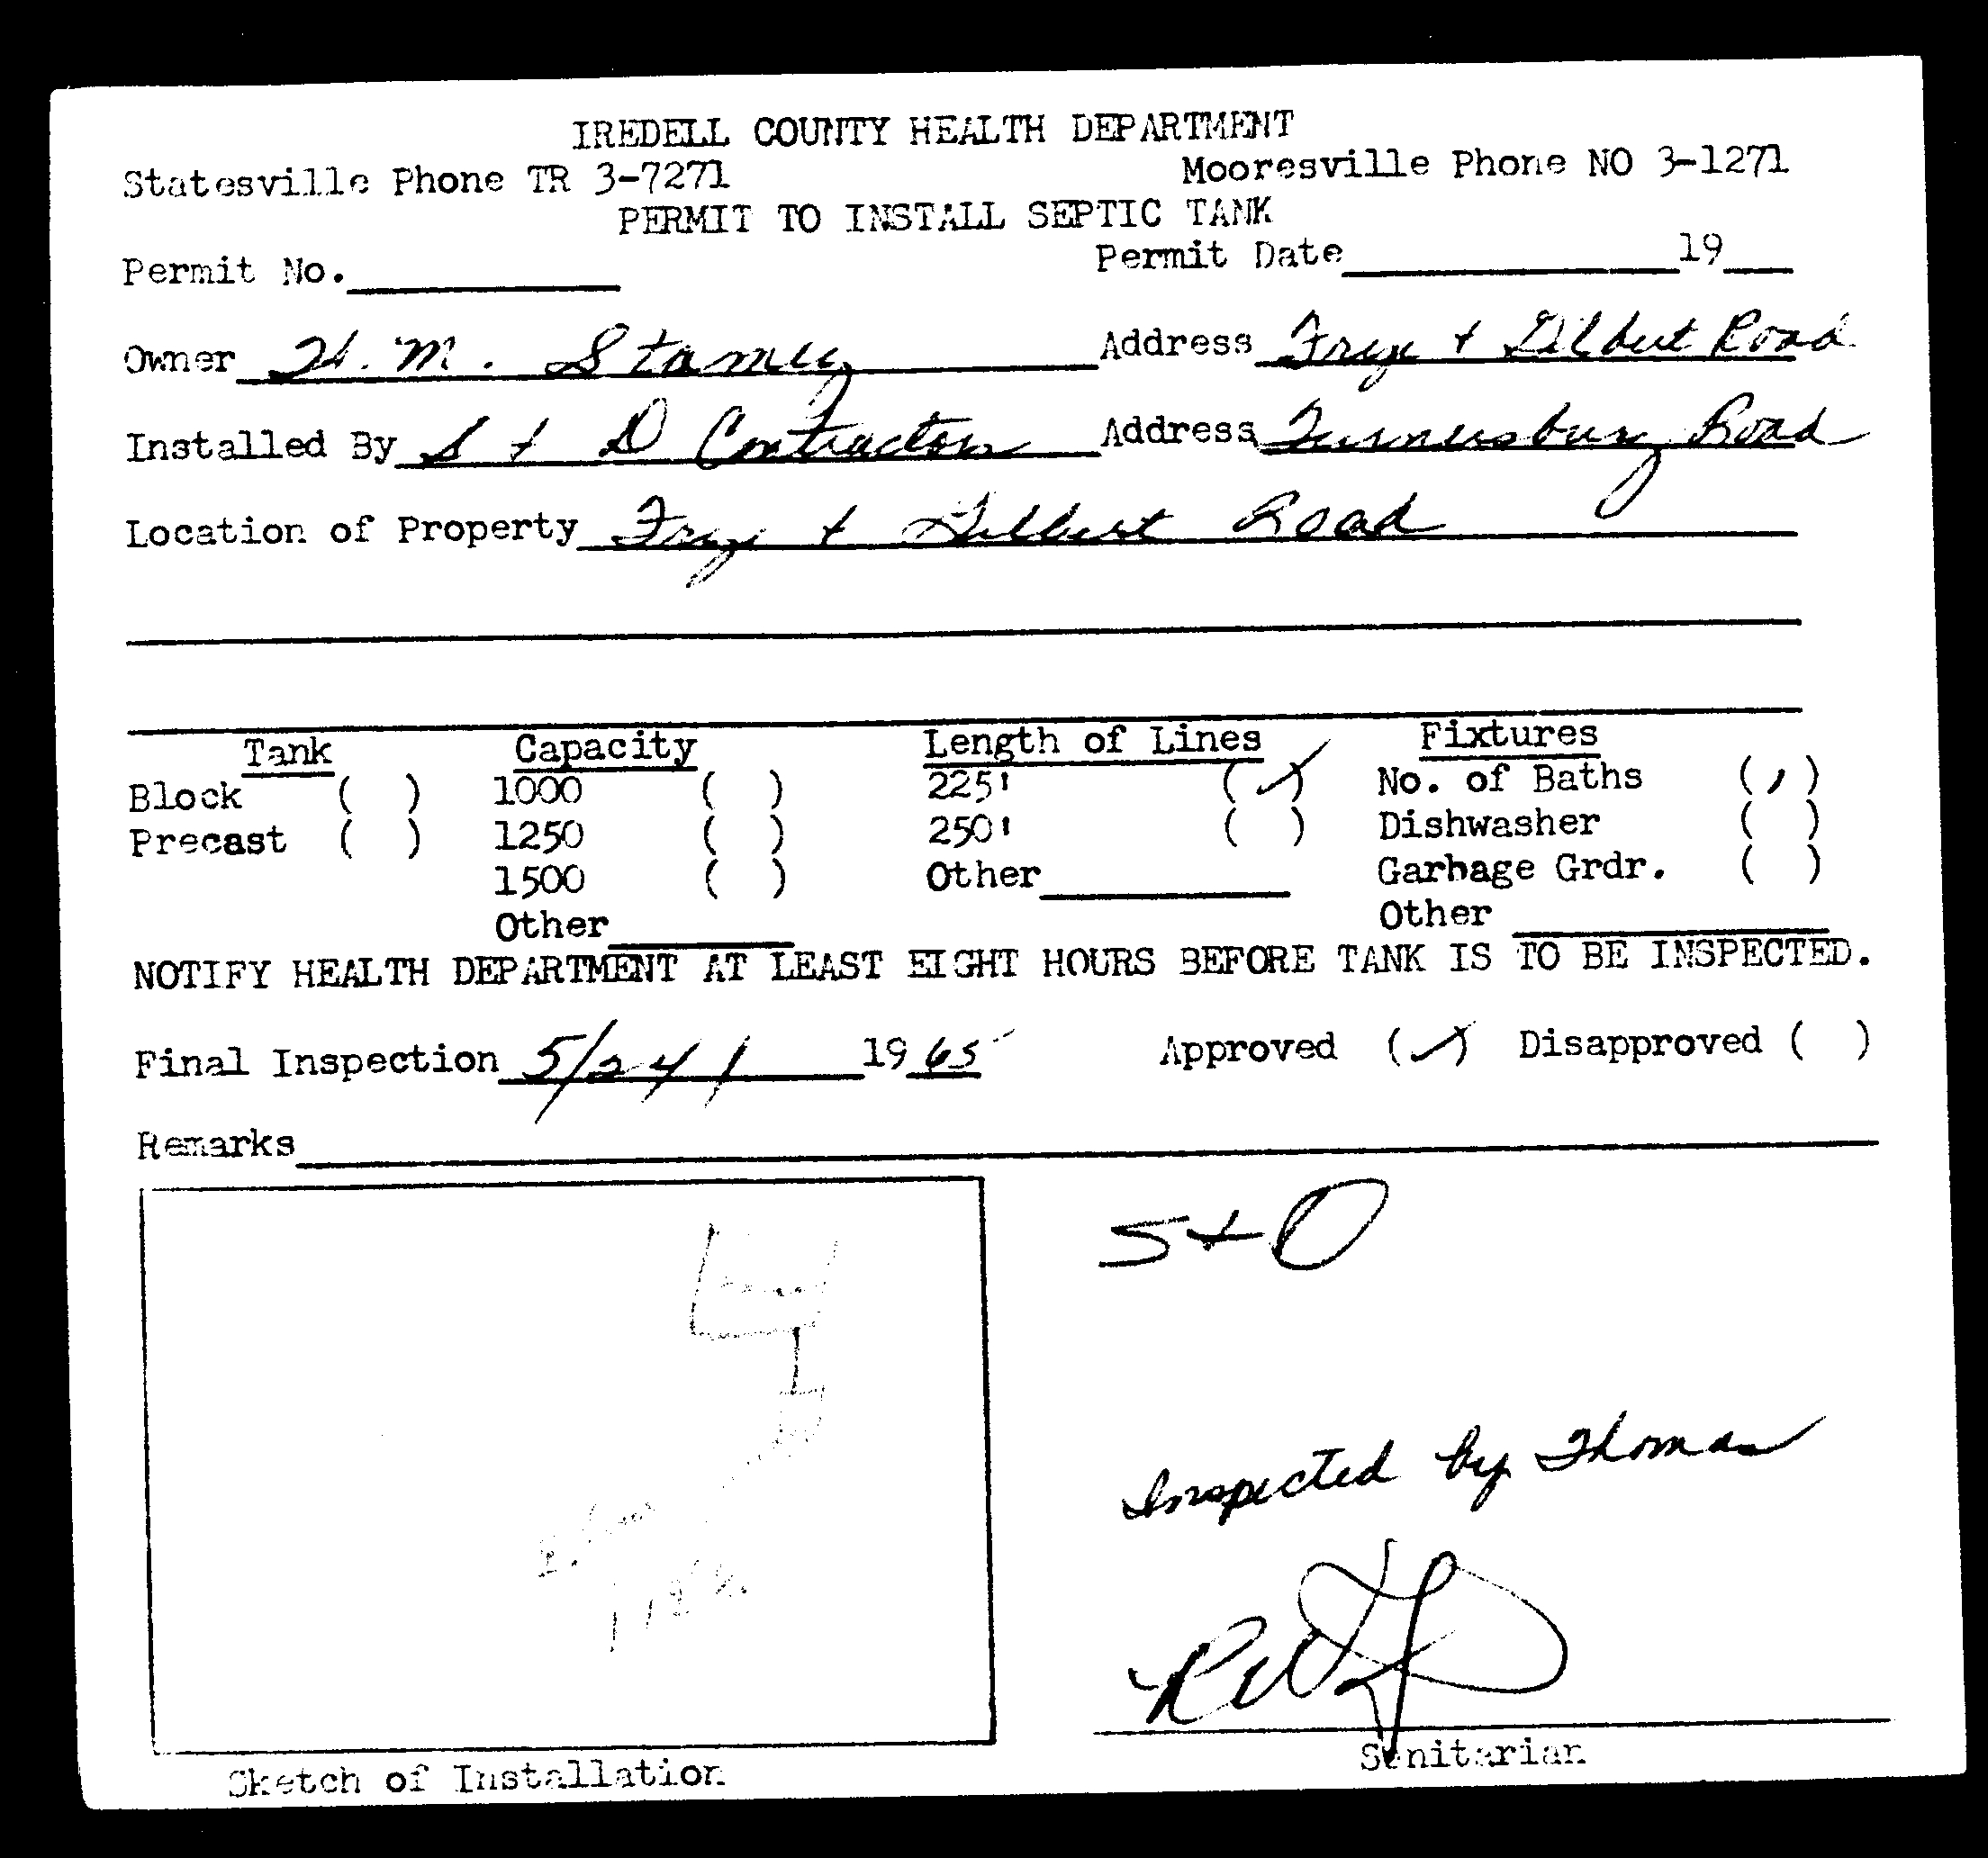 IREDELL COUNTY HEALTH DEPARTMENT
Statesville Phone TR 3-7271 Mooresville Phone NO 3-1271
PERMIT TO INSTALL SEPTIC TANK
Permit No. Permit Date 19
Owner H. M. Stamey Address Frye + Gilbert Road
Installed By S + D Contractors Address Turnersburg Road
Location of Property Frye + Gilbert Road
Tank Capacity Length of Lines Fixtures
Block ( ) 1000 ( ) 225' (✓) No. of Baths (1)
Precast ( ) 1250 ( ) 250' ( ) Dishwasher ( )
1500 ( ) Other Garbage Grdr. ( )
Other Other
NOTIFY HEALTH DEPARTMENT AT LEAST EIGHT HOURS BEFORE TANK IS TO BE INSPECTED.
Final Inspection 5/24/ 1965 Approved (✓) Disapproved ( )
Remarks
S+D
Inspected by Thomas
Sanitarian
Sketch of Installation